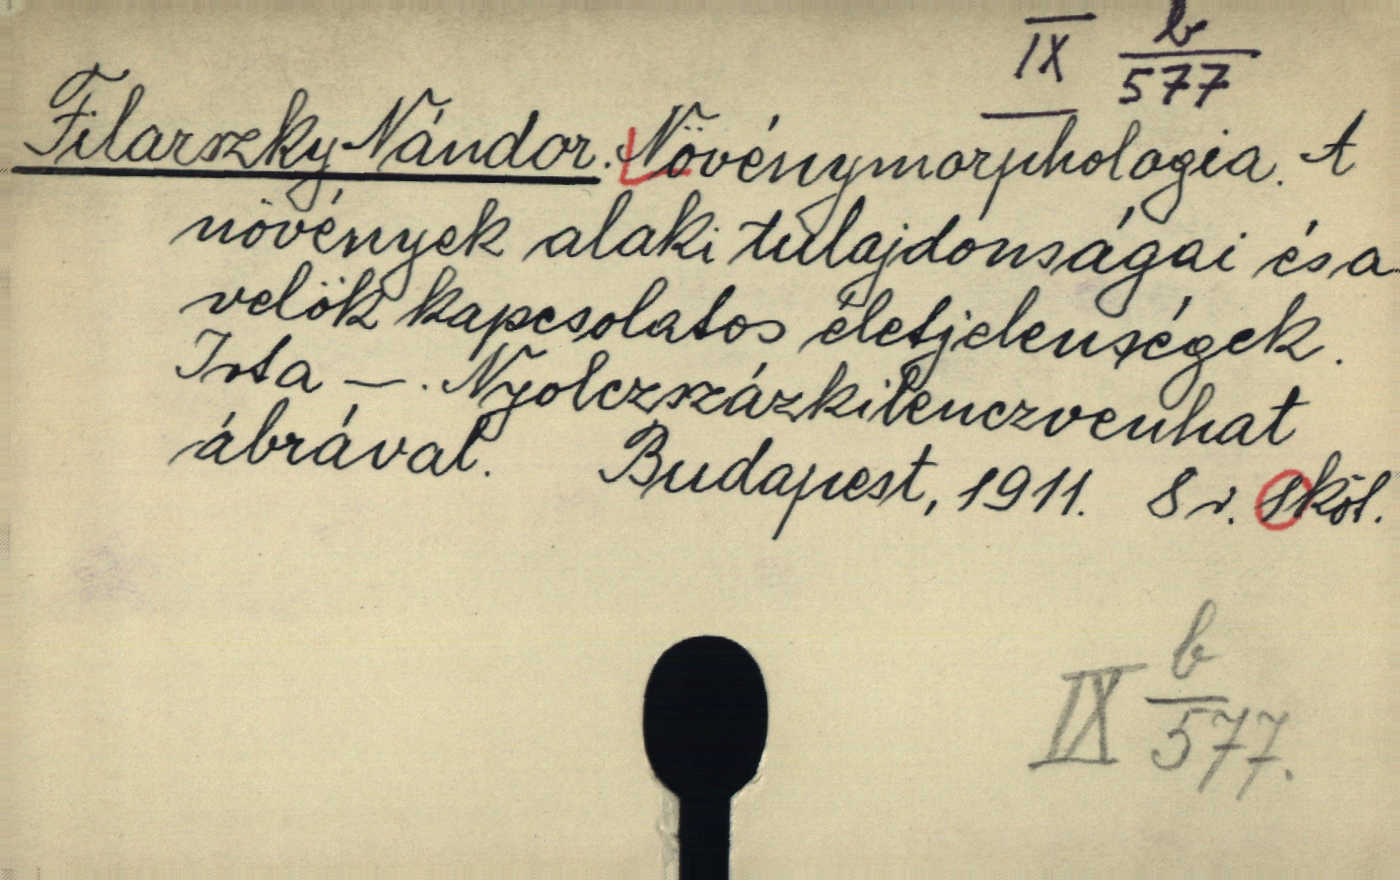 IX b/577
Filarszky Nándor. Növénymorphologia. A
növények alaki tulajdonságai és a
velök kapcsolatos életjelenségek.
Irta —. Nyolczszázkilenczvenhat
ábrával. Budapest, 1911. 8 r. 1 köt.
IX b/577.